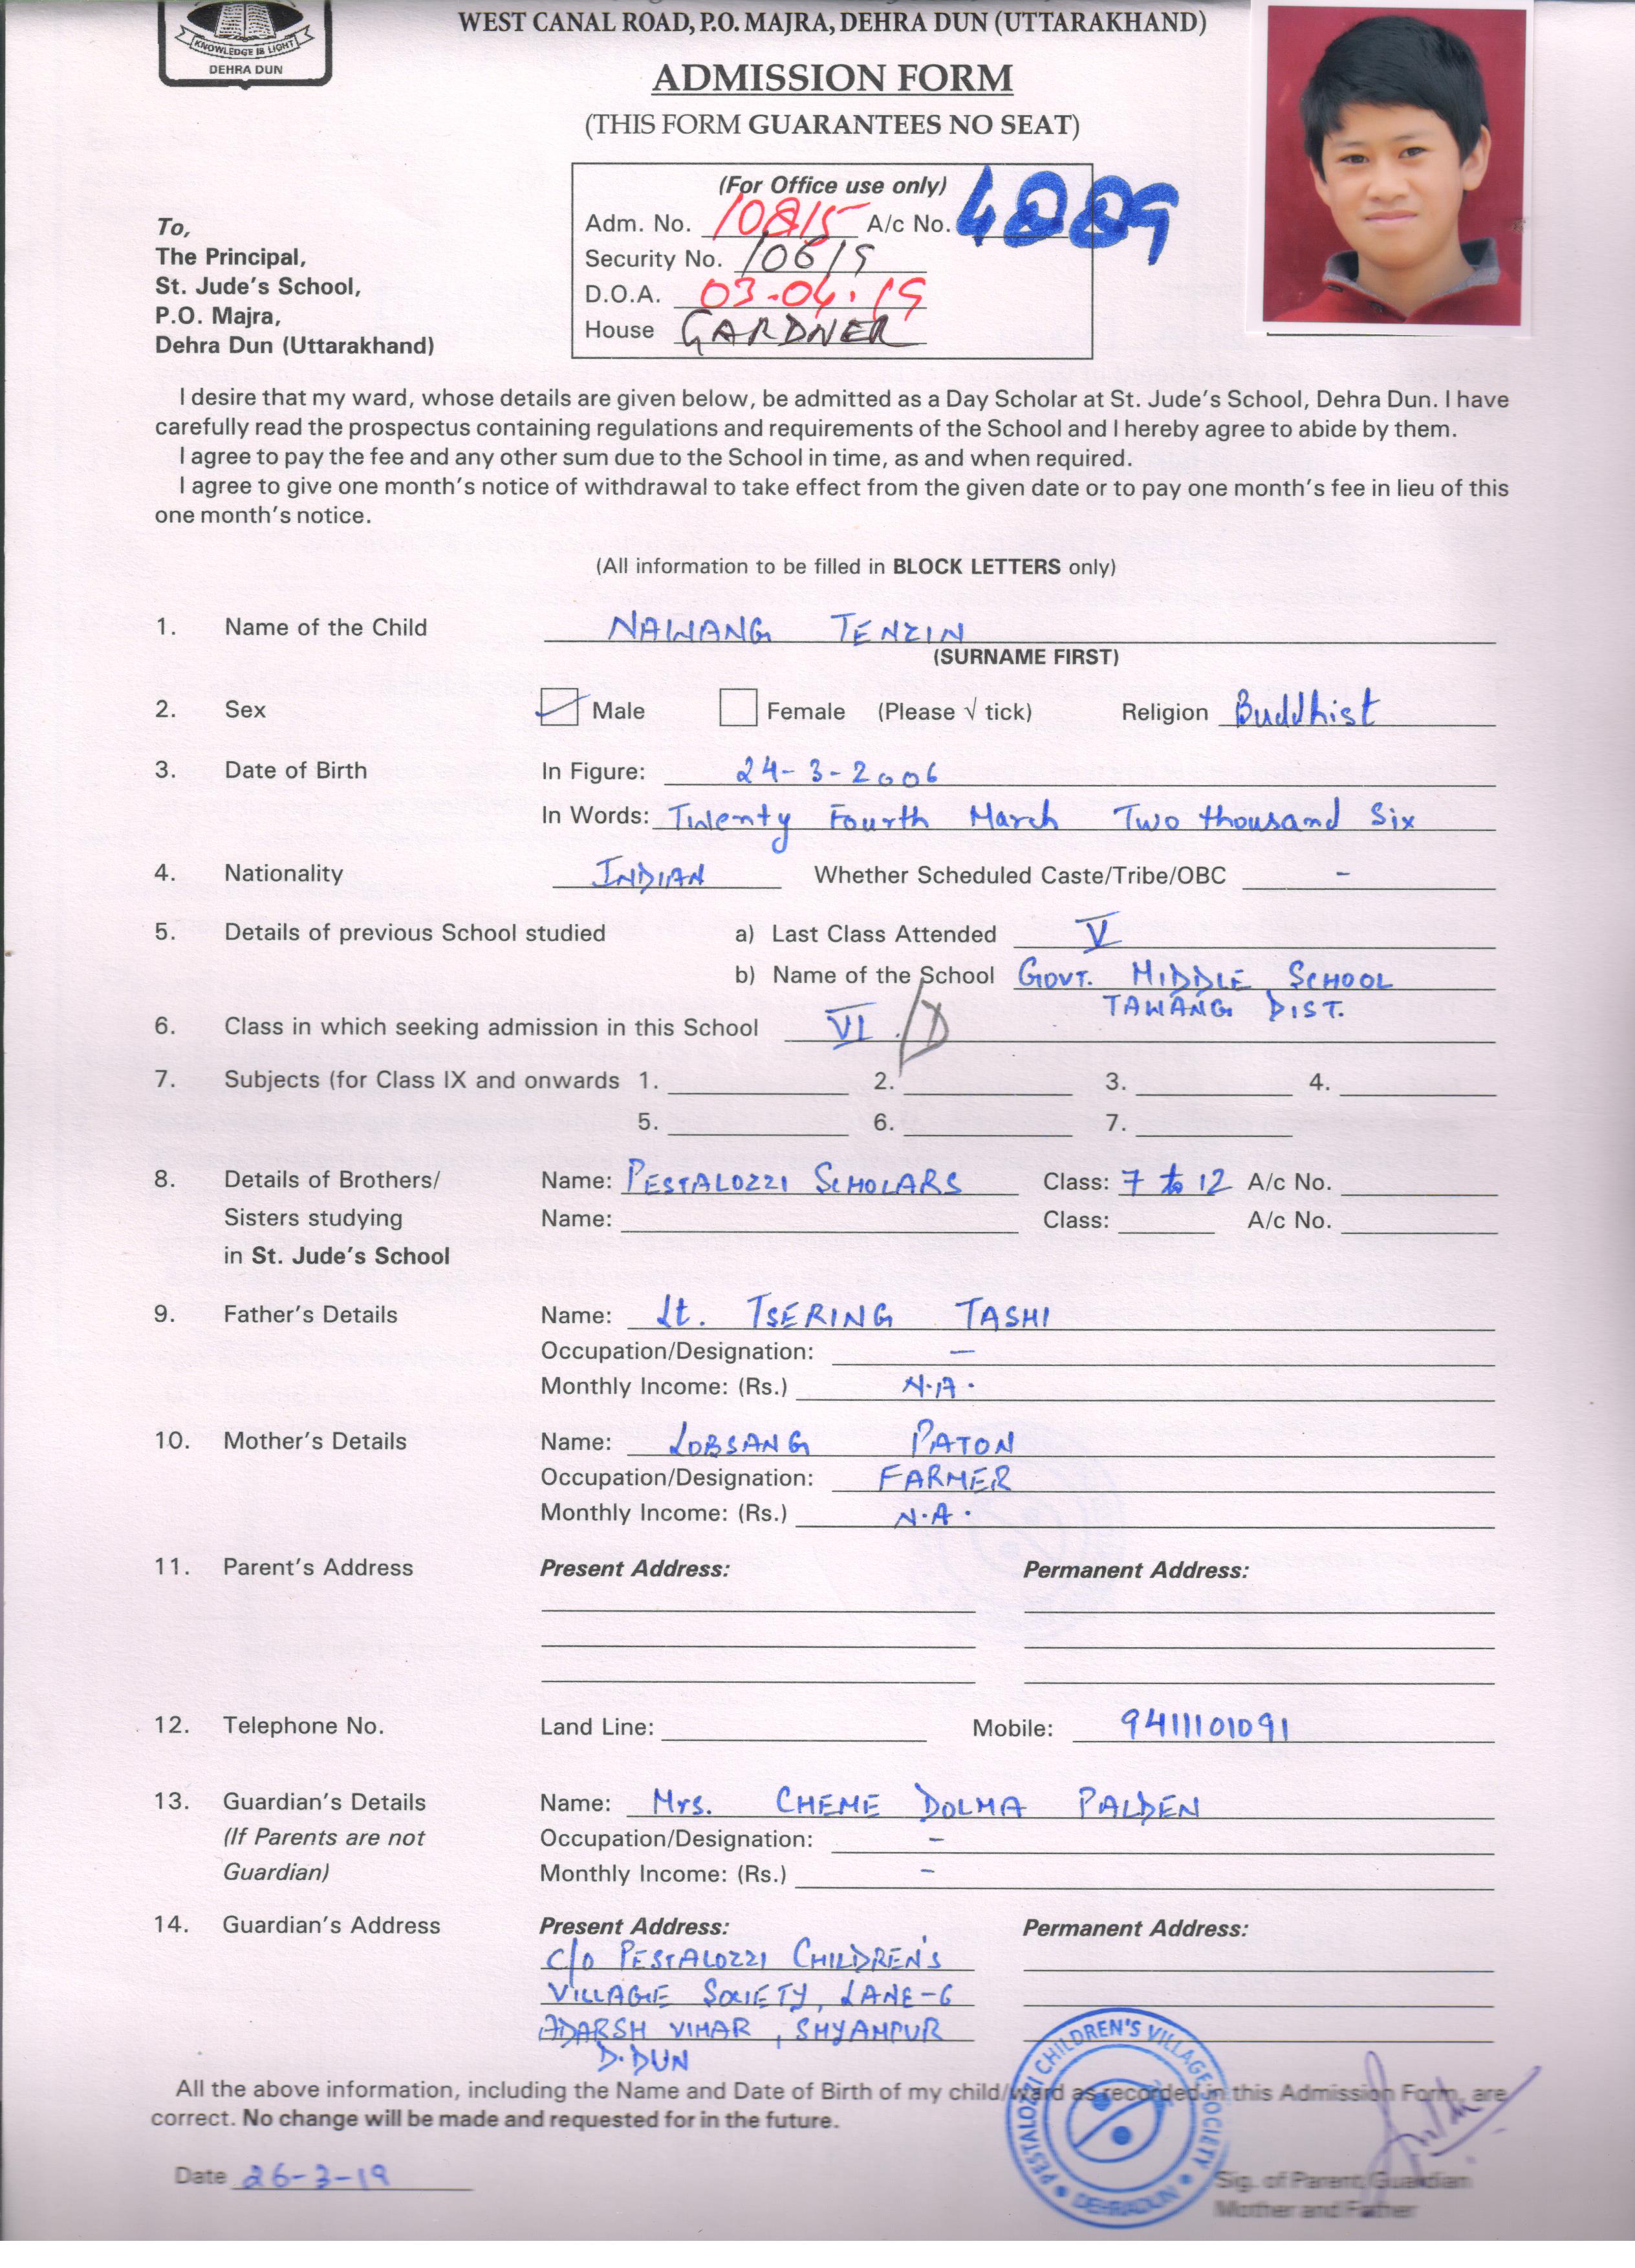 KNOWLEDGE IS LIGHT
DEHRA DUN
WEST CANAL ROAD, P.O. MAJRA, DEHRA DUN (UTTARAKHAND)
ADMISSION FORM
(THIS FORM GUARANTEES NO SEAT)
(For Office use only)
Adm. No. 10815 A/c No. 4889
Security No. 10619
D.O.A. 03-04-19
House GARDNER
To,
The Principal,
St. Jude's School,
P.O. Majra,
Dehra Dun (Uttarakhand)
I desire that my ward, whose details are given below, be admitted as a Day Scholar at St. Jude's School, Dehra Dun. I have
carefully read the prospectus containing regulations and requirements of the School and I hereby agree to abide by them.
I agree to pay the fee and any other sum due to the School in time, as and when required.
I agree to give one month's notice of withdrawal to take effect from the given date or to pay one month's fee in lieu of this
one month's notice.
(All information to be filled in BLOCK LETTERS only)
1. Name of the Child NAWANG TENZIN
(SURNAME FIRST)
2. Sex Male Female (Please √ tick) Religion Buddhist
3. Date of Birth In Figure: 24-3-2006
In Words: Twenty Fourth March Two thousand Six
4. Nationality INDIAN Whether Scheduled Caste/Tribe/OBC -
5. Details of previous School studied a) Last Class Attended V
b) Name of the School GOVT. MIDDLE SCHOOL
TAWANG DIST.
6. Class in which seeking admission in this School VI. /D
7. Subjects (for Class IX and onwards 1. 2. 3. 4.
5. 6. 7.
8. Details of Brothers/ Name: PESTALOZZI SCHOLARS Class: 7 to 12 A/c No.
Sisters studying Name: Class: A/c No.
in St. Jude's School
9. Father's Details Name: Lt. TSERING TASHI
Occupation/Designation: -
Monthly Income: (Rs.) N.A.
10. Mother's Details Name: LOBSANG PATON
Occupation/Designation: FARMER
Monthly Income: (Rs.) N.A.
11. Parent's Address Present Address: Permanent Address:
12. Telephone No. Land Line: Mobile: 9411101091
13. Guardian's Details Name: Mrs. CHEME DOLMA PALDEN
(If Parents are not Occupation/Designation: -
Guardian) Monthly Income: (Rs.) -
14. Guardian's Address Present Address: Permanent Address:
C/o PESTALOZZI CHILDREN'S
VILLAGE SOCIETY, LANE-6
ADARSH VIHAR, SHYAMPUR
D.DUN
PESTALOZZI CHILDREN'S VILLAGE SOCIETY
DEHRADUN
All the above information, including the Name and Date of Birth of my child/ward as recorded in this Admission Form, are
correct. No change will be made and requested for in the future.
Date 26-3-19
Sig. of Parent/Guardian
Mother and Father